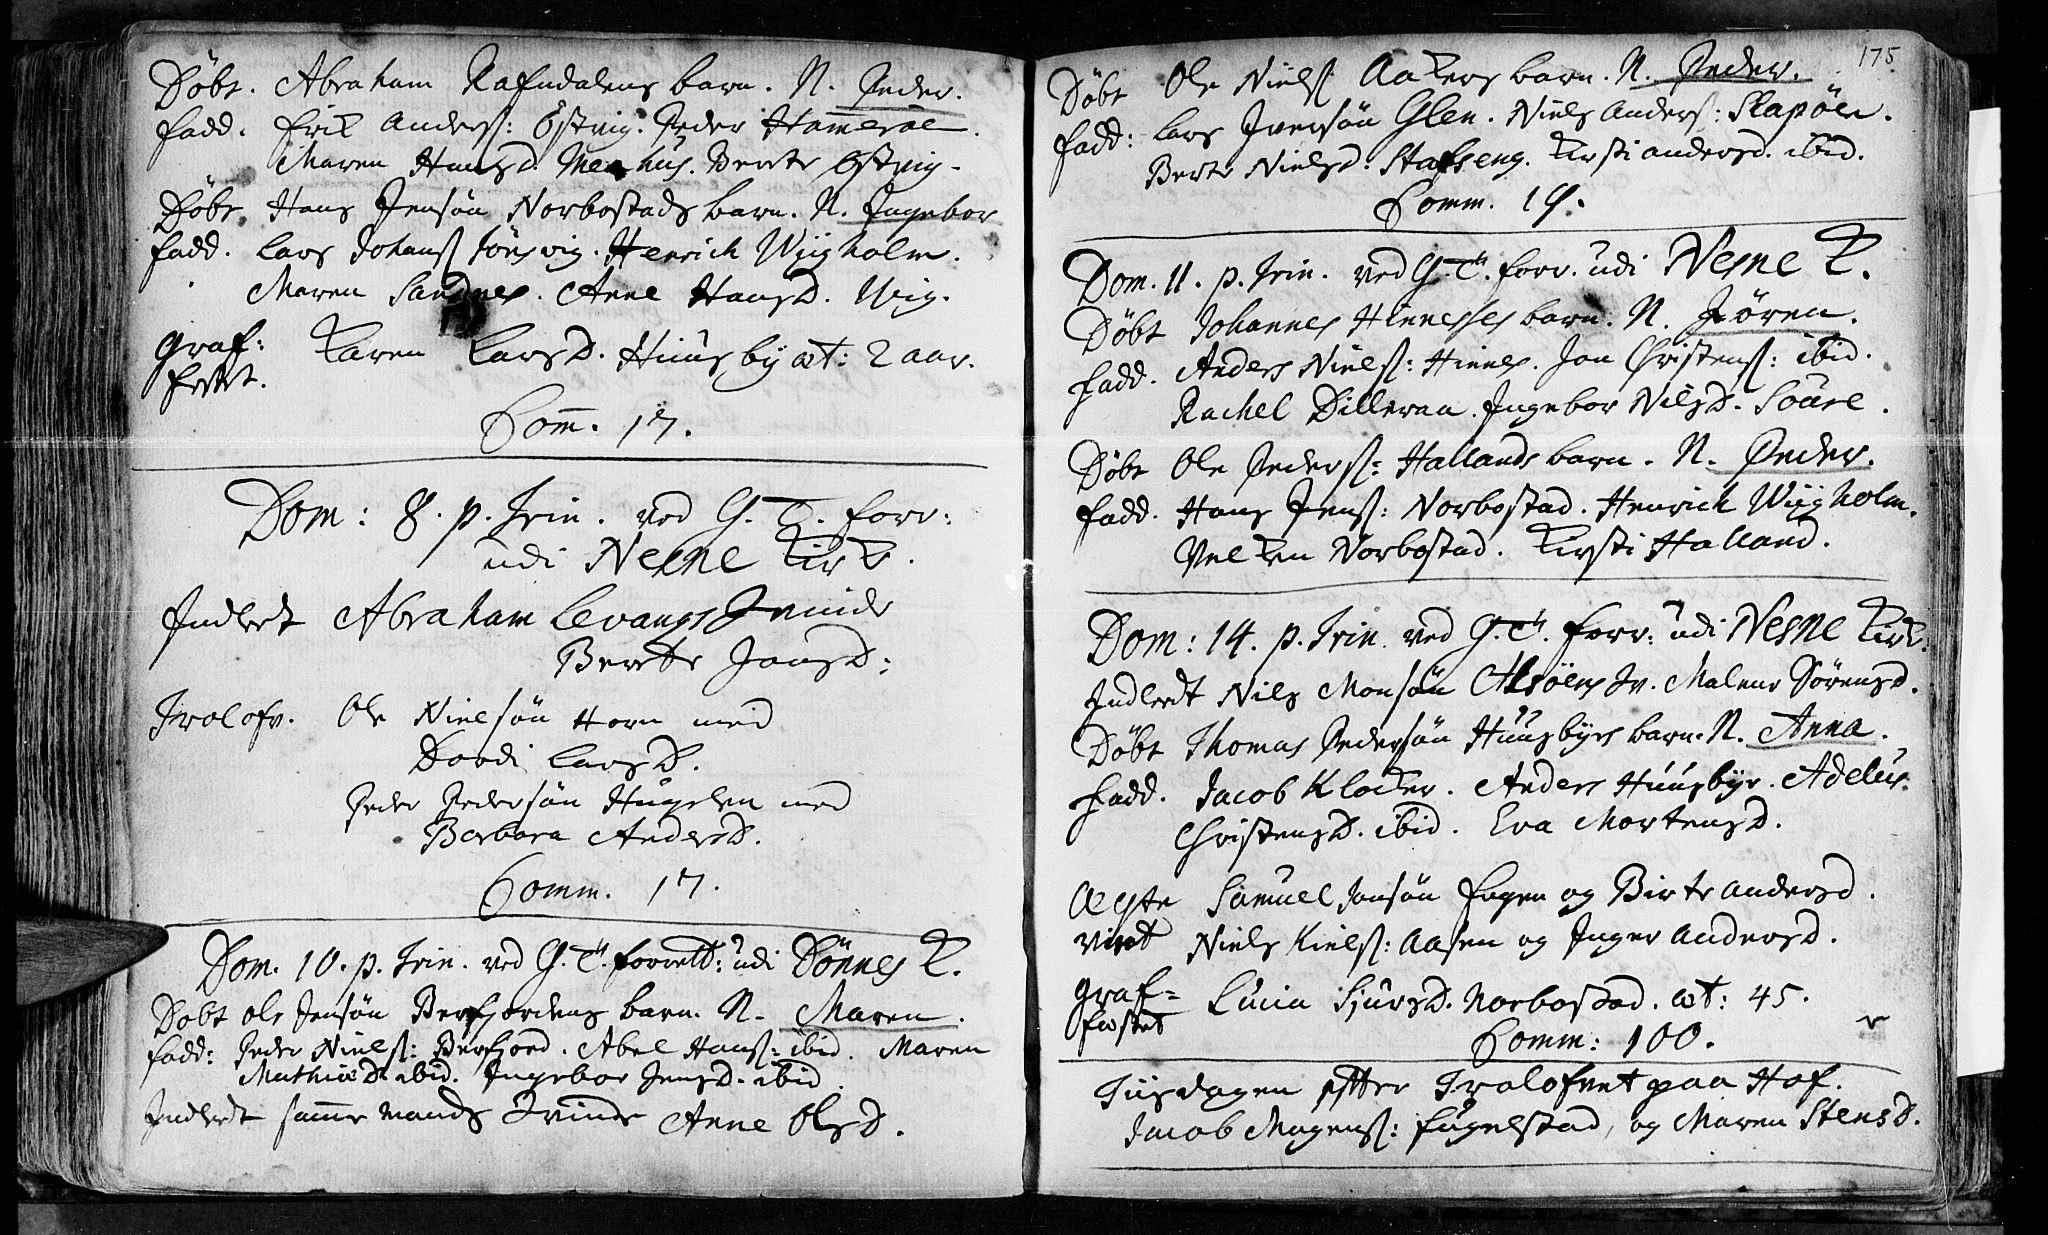 Døbt. Abraham Rafndalens barn. N. Peder.
fadd. Erik Anders: Østvig. Peder Hammerøe.
Maren Hansd. Merhus. Berte Østvig.
Døbt Hans Jensøn Norbostads barn. N. Ingebor
fadd. Lars Johans Wiigholm. Henrich Wiigholm.
Maren Sandnes. Anne Hansd. Wiig.
Graf: Karen Larsd. Huusby æt: 2 aar.
festet.
Comm. 17.
Dom: 8. p. Trin. ved G. T. forr:
udi Nesne Kirk.
Indledt Abraham Levangs Qvinde
Berete Jonsd:
Trolofv. Ole Nielsøn Horn med
Dordi Larsd.
Peder Pedersøn Hugelen med
Barbara Andersd.
Comm. 17.
Dom. 10. p. Trin. ved G. T. forrett: udi Dønnes K.
Døbt Ole Jensøn Berfjordens barn. N. Maren.
fadd: Peder Niels: Berfjord. Abel Hans: ibid. Maren
Mathiæd. ibid. Ingebor Jensd. ibid.
Indledt samme mands Qvinde Anne Olsd.
175
Døbt Ole Niels Aakers barn. N. Peder.
fadd: Lars Iversøn Glen. Niels Anders: Skapøen.
Berte Nielsd. Stafseng. Kirsti Andersd. ibid.
Comm. 19.
Dom. 11. p. Trin. ved G. T. forr. udi Nesne K.
Døbt Johannes Hinnesses barn. N. Jøren.
fadd. Anders Niels: Hinnes. Jon Christens: ibid.
Rachel Dilleraa. Ingebor Nilsd.
Døbt Ole Peders: Hallands barn. N. Peder.
fadd. Hans Jens: Norbostad. Henrich Wiigholm.
Velken Norbostad. Kirsti Halland.
Dom: 14. p. Trin. ved G. T. forr: udi Nesne Kirk:
Indledt Nils Monsøn Alsøens Qv. Malene Sørensd.
Døbt Thomas Pedersøn Huusbyes barn. N. Anna.
fadd. Jacob Klocker. Anders Huusbye. Adelus
Christensd. ibid. Eva Mortensd.
Ægte Samuel Jonsøn Fagen og Birte Andersd.
viet Niels Kiels: Aasen og Inger Andersd.
Graf= Lucia Sjursd. Norbostad. æt: 45.
festet
Comm: 100.
Tiisdagen efter Trolofvet paa Hof.
Jacob Mogens: Fugelstad, og Maren Stensd.